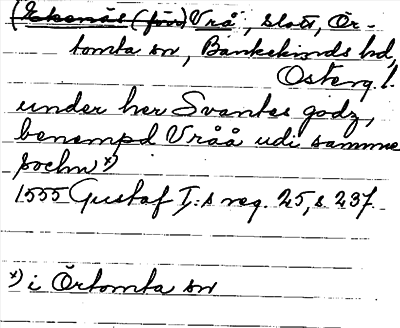 (Ekenäs (förr) Vrå, slott, Ör-
tomta sn, Bankekinds hd,
Österg. l.
under her Svantes godz,
benempd Vråå udi samme
sochn x)
1555 Gustaf I:s reg. 25, s. 237.
x) i Örtomta sn